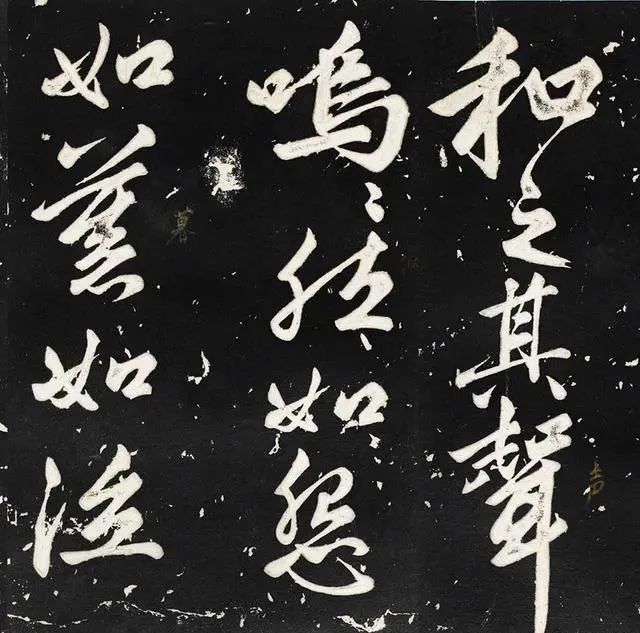 和之其聲
嗚〻然如怨
如慕如泣